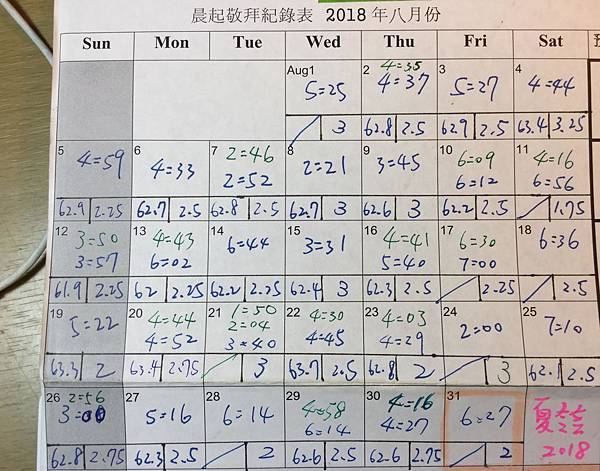 晨起敬拜紀錄表 2018 年八月份
Sun Mon Tue Wed Thu Fri Sat
Aug1 2 3 4
4=35
5=25 4=37 5=27 4=44
3 62.8 2.5 62.9 2.5 63.4 3.25
5 6 7 8 9 10 11
2=46 6=09 4=16
4=59 4=33 2=52 2=21 3=45 6=12 6=56
62.9 2.25 62.7 2.5 62.8 2.5 62.7 3 62.6 3 62.2 2.5 1.75
12 13 14 15 16 17 18
3=50 4=43 4=41 6=30
3=57 6=02 6=44 3=31 5=40 7=00 6=36
61.9 2.25 62 2.25 62.2 2.25 62.4 3 62.3 2.5 2.25 2.5
19 20 21 22 23 24 25
1=50
4=44 2=04 4=30 4=03
5=22 4=52 3=40 4=45 4=29 2=00 7=10
63.3 2 63.4 2.75 3 63.7 2.5 62.8 2 3 62.1 2.5
26 27 28 29 30 31
2=56 4=58 4=16
3=00 5=16 6=14 6=14 4=27 6=27 夏芸
2018
62.8 2.75 62.3 2.5 2 62.6 2.5 62.6 2.75 2